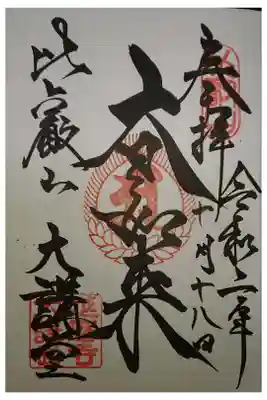 奉拝
令和二年
十月十八日
大日如来
比叡山
大講堂